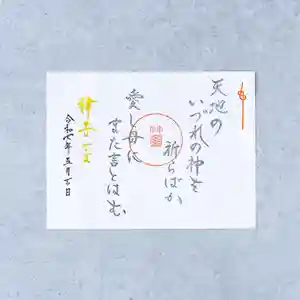 天地の
いづれの神を
祈らばか
愛し母に
また言とはむ
令和七年五月 日